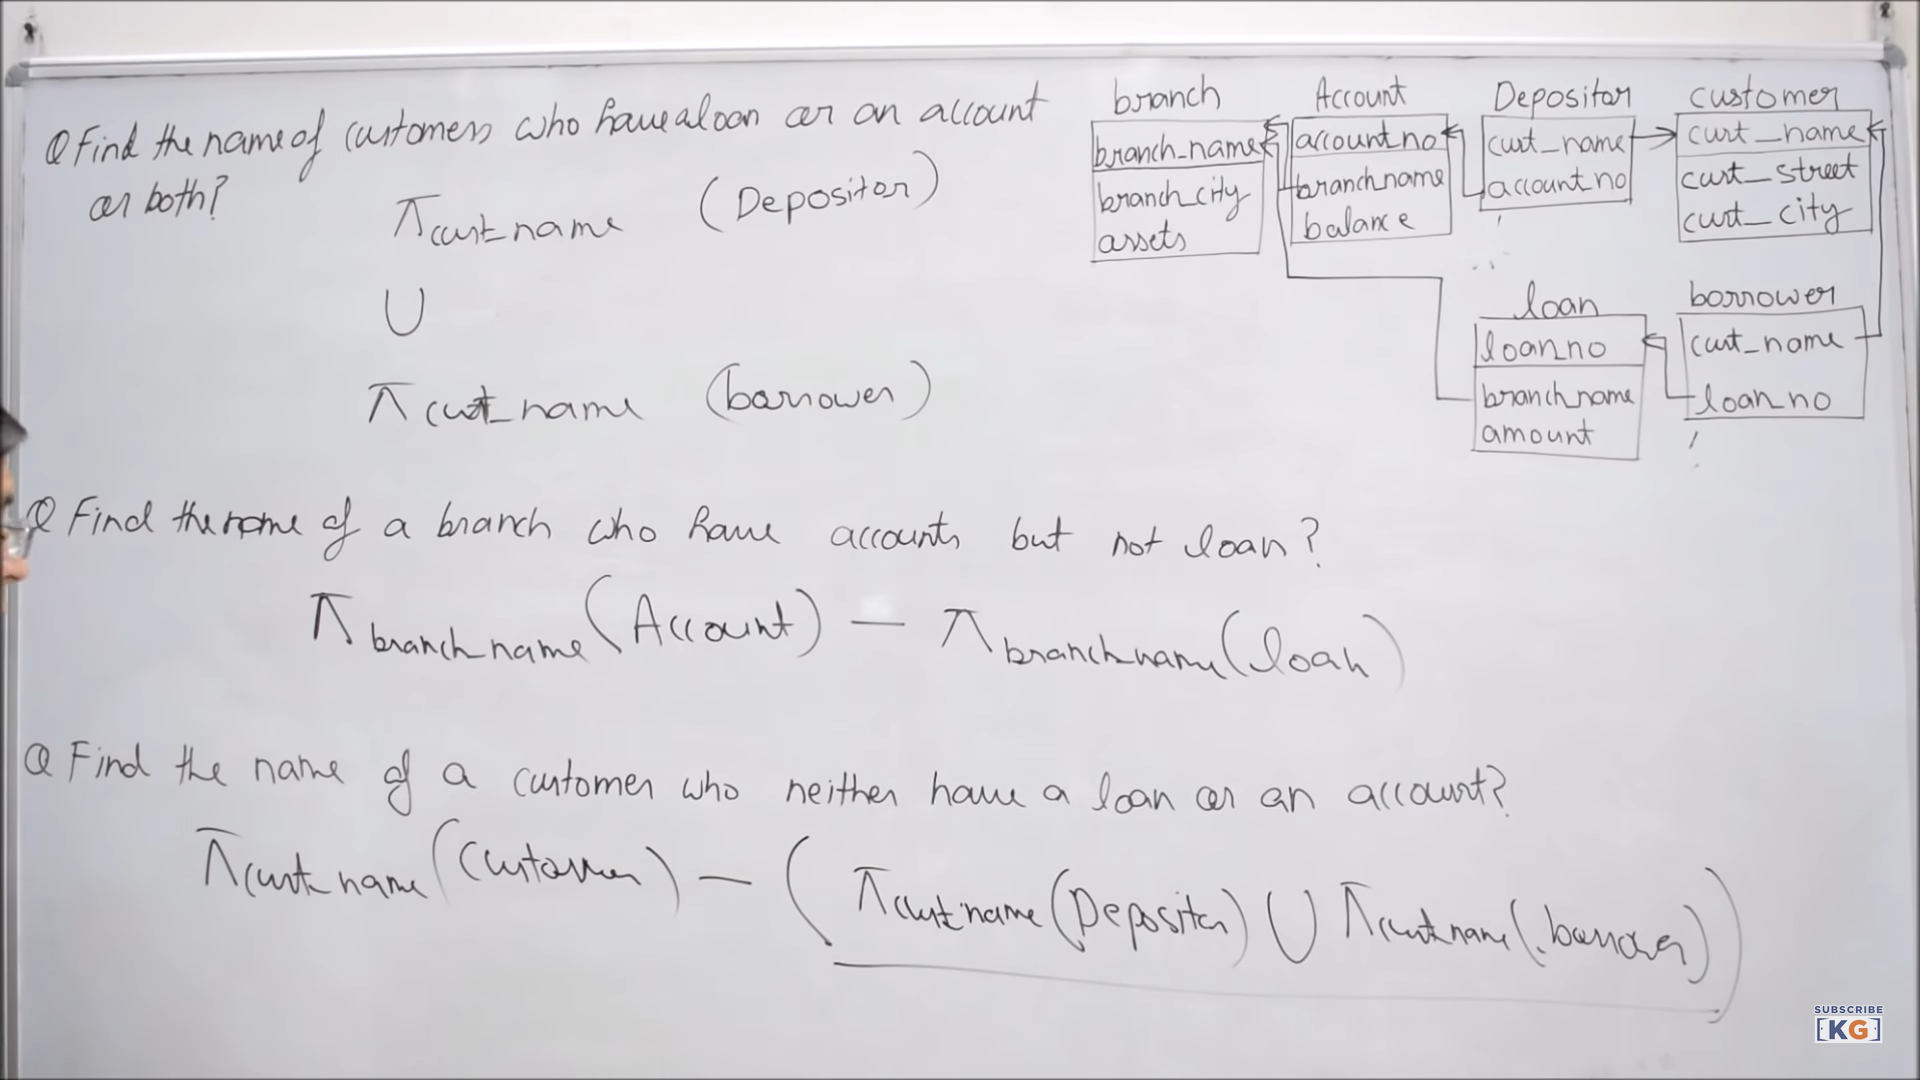 Q Find the name of customers who have a loan or an account
or both?
π cust_name (Depositor)
∪
π cust_name (borrower)
branch
branch_name
branch_city
assets
Account
account_no
branch_name
balance
Depositor
cust_name
account_no
customer
cust_name
cust_street
cust_city
loan
loan_no
branch_name
amount
borrower
cust_name
loan_no
Q Find the name of a branch who have accounts but not loan?
π branch_name (Account) — π branch_name (loan)
Q Find the name of a customer who neither have a loan or an account?
π cust_name (Customer) — (π cust_name (Depositor) ∪ π cust_name (borrower))
SUBSCRIBE
[KG]